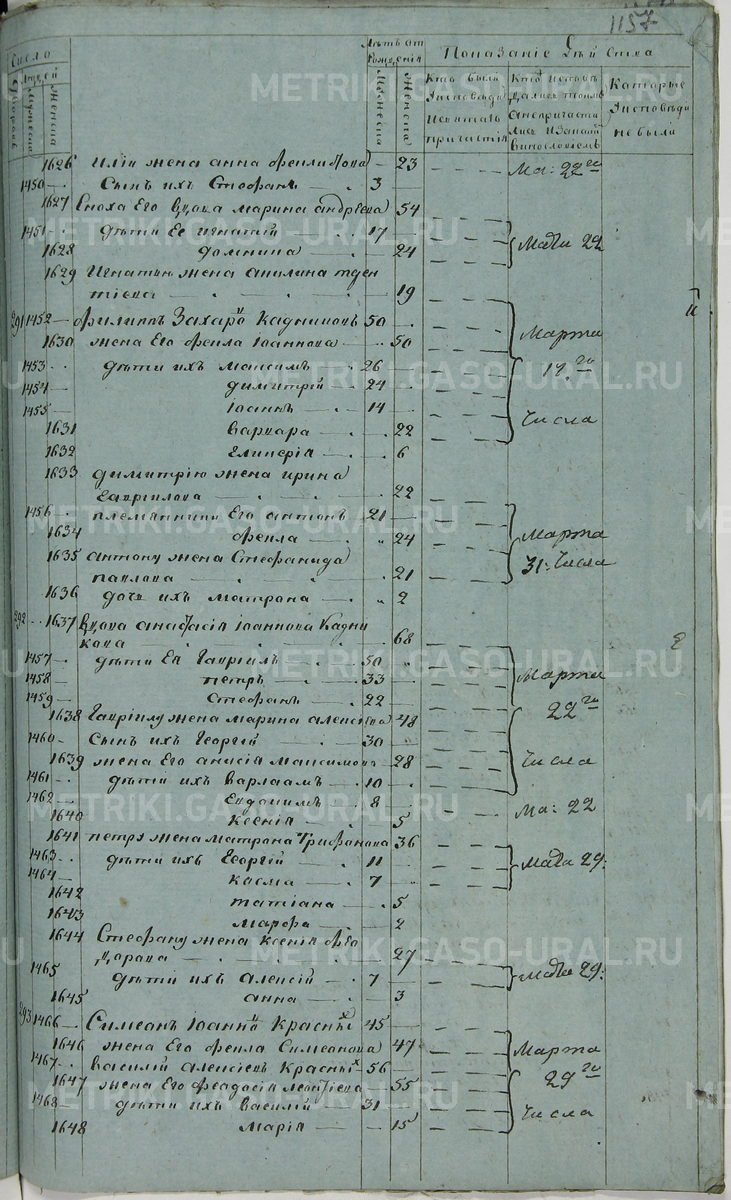 1157
Число
Людей
Дворовъ
Мужеска
Женска
Лѣтъ отъ
Рожденія
Мужеска
Женска
Показаніе Сѣй Ства
Кто были
Уисповѣди
Исвятаго
причастія
Кто исповѣ
дались токмо
Анепричасти
лись
винословіемъ
Которые
Уисповѣди
небыли
1626 Иліи жена анна 23 Ма: 22го
1450 Сынъ ихъ Стефанъ 3
1627 Еноха Его вдова марина андреева 54
1451 дѣти Ее игнатій 17 Мар 29
1628 домнина 24
1629 Игнатью жена акилина
тіева 19
291 1452 Филиппъ Захаровъ Кадниковъ 50 Марта
1630 жена Его Фекла Іоаннова 50
1453 дѣти ихъ максимъ 26 17.го
1454 димитрій 24
1455 Іоаннъ 14 Числа
1631 варвара 22
1632 Гликерія 6
1633 димитрію жена ирина
Гаврилова 22
1456 племянники Его антонъ 21 Марта
1634 Фекла 24
1635 антону жена Стефанида 31: Числа
павлова 21
1636 дочь ихъ матрона 2
292 1637 вдова анастасія Іоаннова Кадни
кова 68
1457 дѣти Ея Гавріилъ 50 Марта
1458 петръ 33
1459 Стефанъ 22 22го
1638 Гавріилу жена марина алексѣева 48
1460 Сынъ ихъ Георгій 30
1639 жена Его анисія максимова 28 Числа
1461 дѣти ихъ варлаамъ 10
1462 Евдокимъ 8 Ма: 22
1640 ксенія 5
1641 петру жена матрона Трифанова 36
1463 дѣти ихъ Георгій 11 Мар 29:
1464 касма 7
1642 татіана 5
1643 марфа 2
1644 Стефану жена ксенія Фео
дорова 27
1465 дѣти ихъ алексій 7 Мар 29:
1645 анна 3
293 1466 Симеонъ Іоанновъ Красныхъ 45
1646 жена Его Фекла Симеонова 47 Марта
1467 василій алексіевъ Красныхъ 56
1647 жена Его Феодосія леонтіева 55 29го
1468 дѣти ихъ василій 31
1648 марія 15 Числа
METRIKI.GASO-URAL.RU